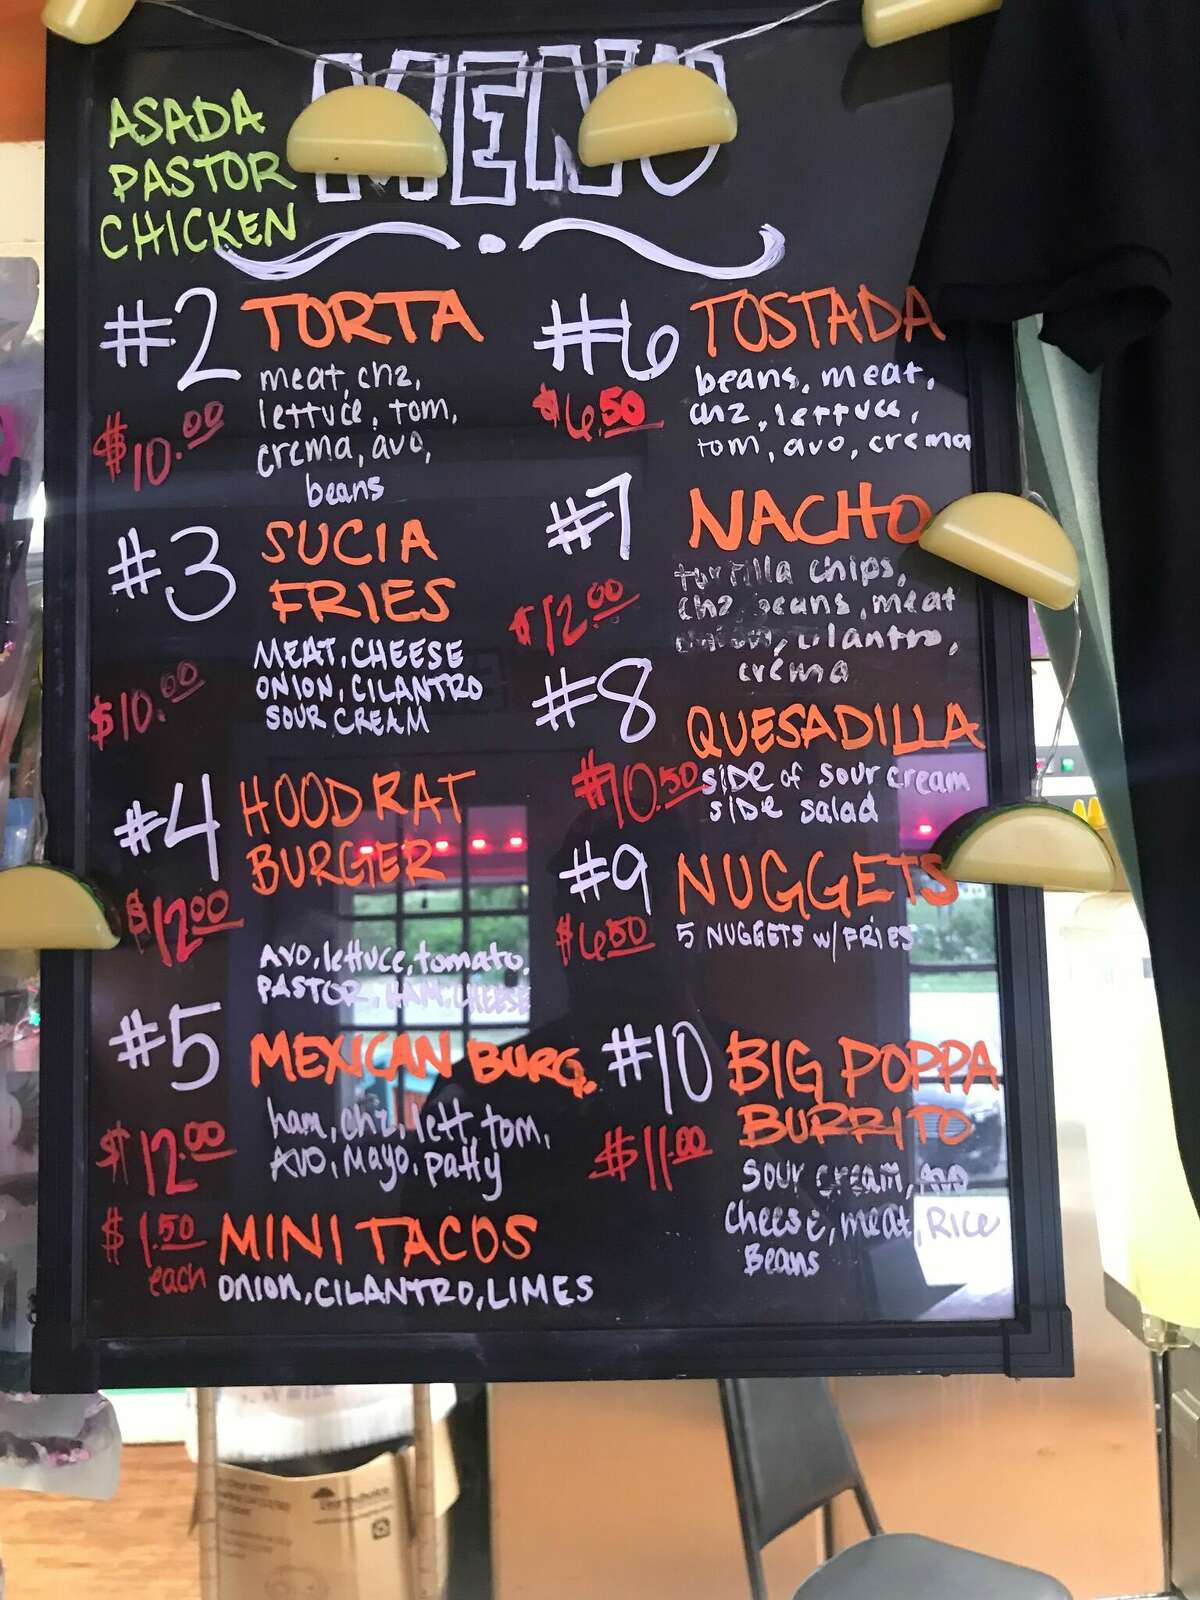 MENU
ASADA
PASTOR
CHICKEN
#2 TORTA
$10.00
meat, chz,
lettuce, tom,
crema, avo,
beans
#3 SUCIA
FRIES
$10.00
MEAT, CHEESE
ONION, CILANTRO
SOUR CREAM
#4 HOODRAT
BURGER
$12.00
AVO, lettuce, tomato,
PASTOR, HAM, CHEESE
#5 MEXICAN BURG.
$12.00
ham, chz, lett, tom,
AVO, MAYO, patty
$1.50
each
MINI TACOS
ONION, CILANTRO, LIMES
#6 TOSTADA
$6.50
beans, meat,
chz, lettuce,
tom, avo, crema
#7 NACHO
$12.00
tortilla chips,
chz, beans, meat
onion, cilantro,
crema
#8 QUESADILLA
$10.50
side of sour cream
side salad
#9 NUGGETS
$6.50
5 NUGGETS w/ FRIES
#10 BIG POPPA
BURRITO
$11.00
sour cream, AVO
cheese, meat, RICE
Beans